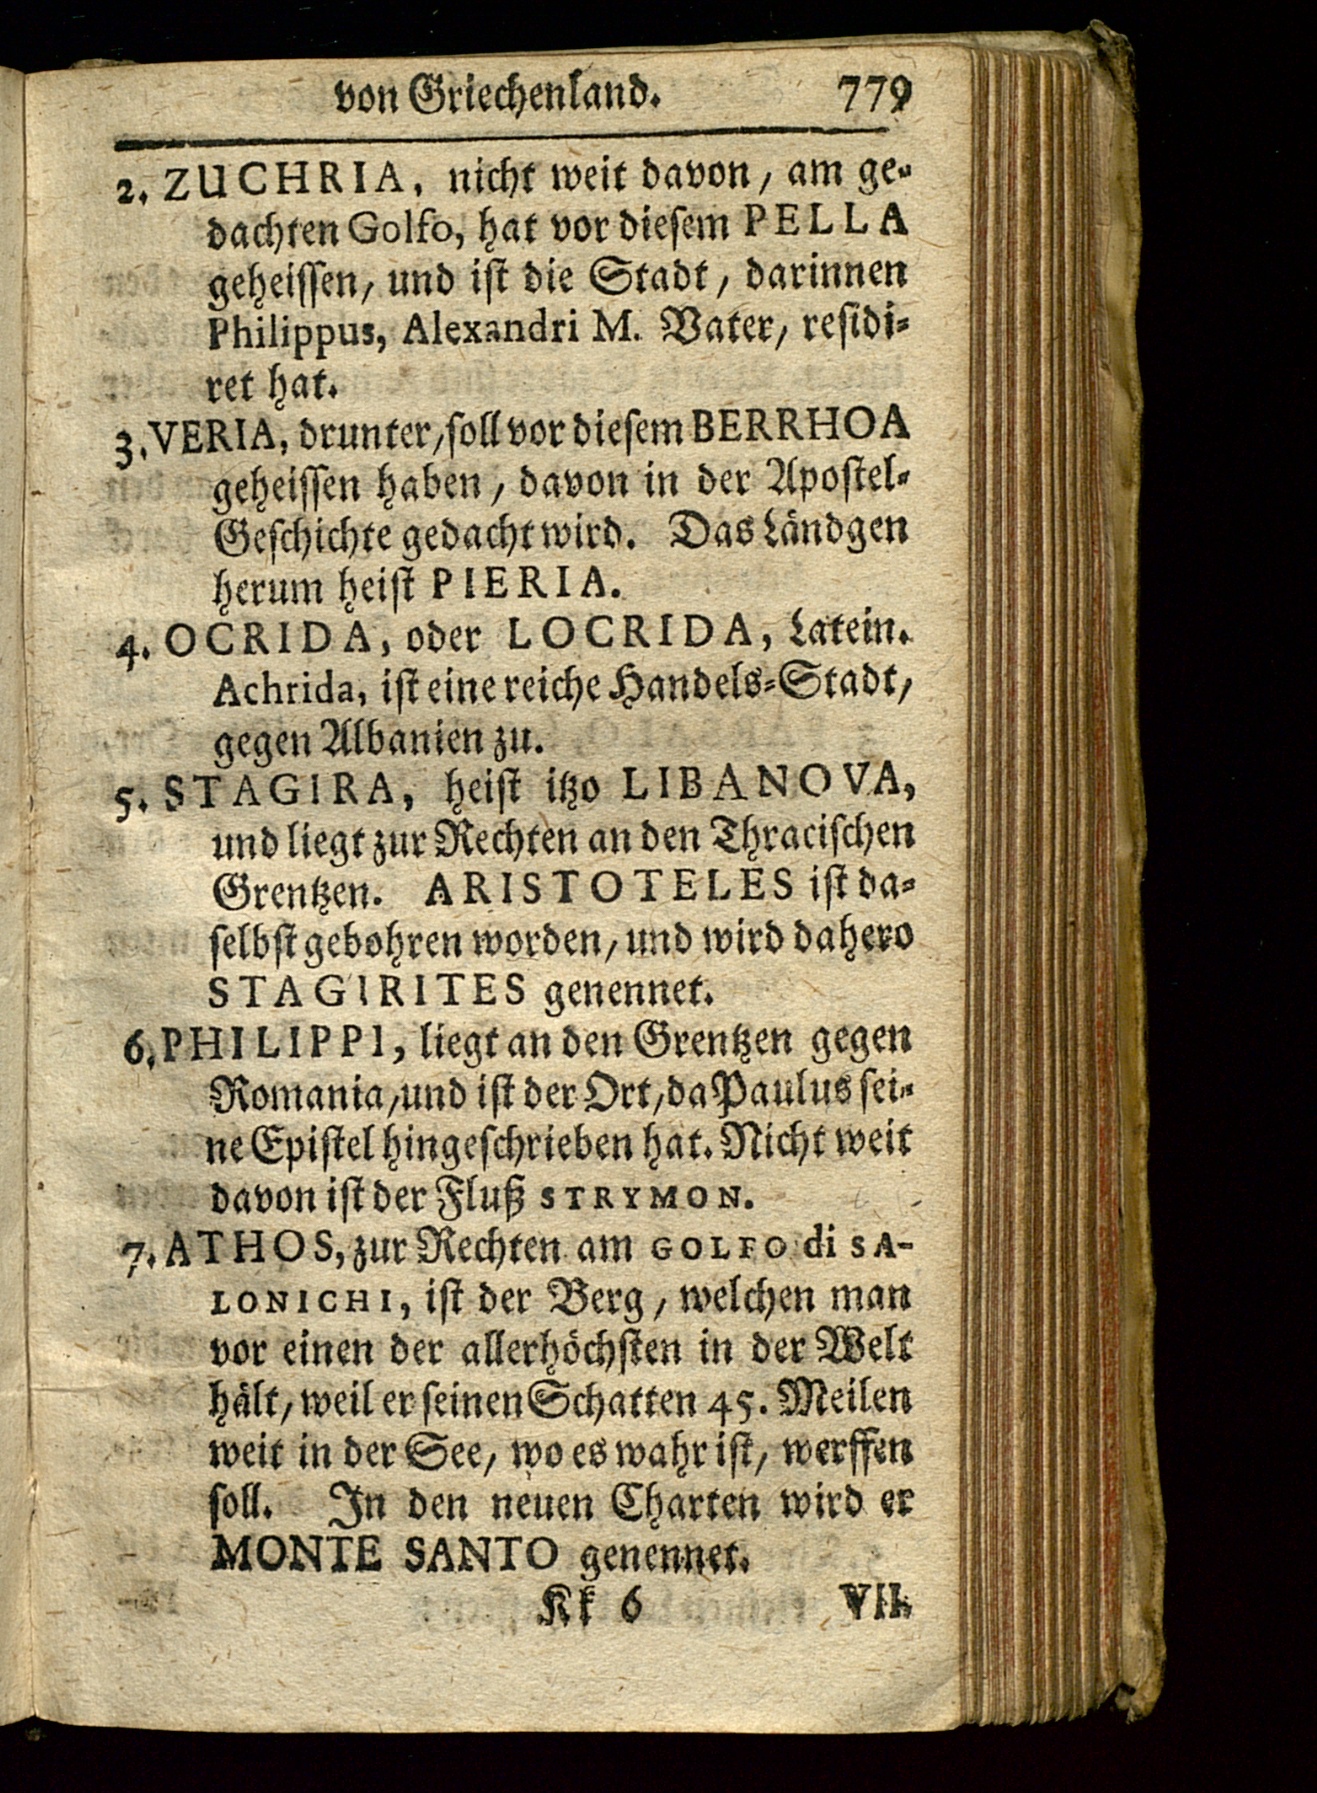 von Griechenland. 779
2. ZUCHRIA, nicht weit davon, am ge-
dachten Golfo, hat vor diesem PELLA
geheissen, und ist die Stadt, darinnen
Philippus, Alexandri M. Vater, residi-
ret hat.
3. VERIA, drunter, soll vor diesem BERRHOA
geheissen haben, davon in der Apostel-
Geschichte gedacht wird. Das Ländgen
herum heist PIERIA.
4. OCRIDA, oder LOCRIDA, Latein.
Achrida, ist eine reiche Handels-Stadt,
gegen Albanien zu.
5. STAGIRA, heist itzo LIBANOVA,
und liegt zur Rechten an den Thracischen
Grentzen. ARISTOTELES ist da-
selbst gebohren worden, und wird dahero
STAGIRITES genennet.
6. PHILIPPI, liegt an den Grentzen gegen
Romania, und ist der Ort, da Paulus sei-
ne Epistel hingeschrieben hat. Nicht weit
davon ist der Fluß STRYMON.
7. ATHOS, zur Rechten am GOLFO di SA-
LONICHI, ist der Berg, welchen man
vor einen der allerhöchsten in der Welt
hält, weil er seinen Schatten 45. Meilen
weit in der See, wo es wahr ist, werffen
soll. In den neuen Charten wird er
MONTE SANTO genennet.
Kk 6 VII.